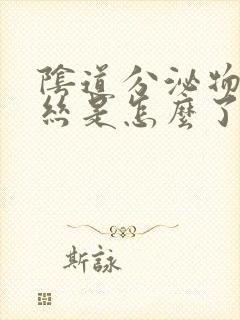 陰道分泌物
絲是怎麼了
斯詠